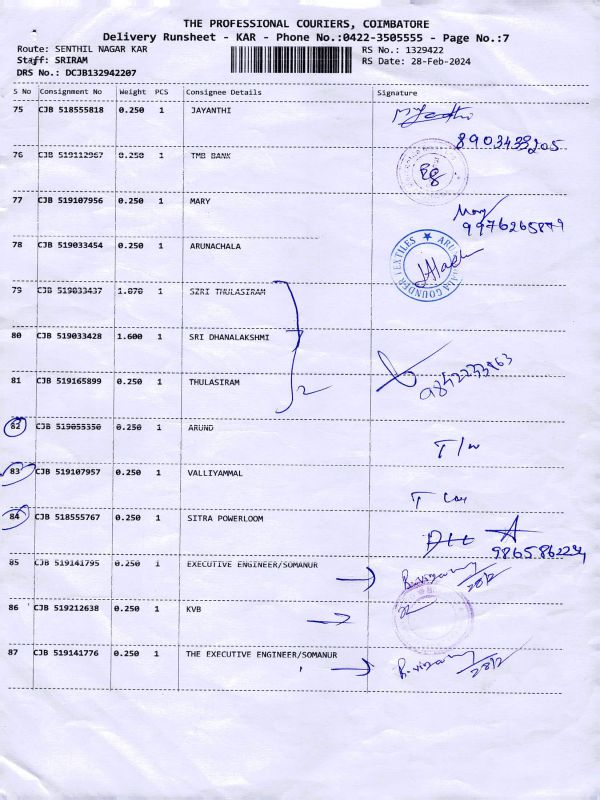 THE PROFESSIONAL COURIERS, COIMBATORE
Delivery Runsheet - KAR - Phone No.:0422-3505555 - Page No.:7
Route: SENTHIL NAGAR KAR
RS No.: 1329422
Staff: SRIRAM
RS Date: 28-Feb-2024
DRS No.: DCJB132942207
S No Consignment No Weight PCS Consignee Details Signature
75 CJB 518555818 0.250 1 JAYANTHI
8903433205
76 CJB 519112967 0.250 1 TMB BANK
77 CJB 519107956 0.250 1 MARY Mary
9976265879
78 CJB 519033454 0.250 1 ARUNACHALA
79 CJB 519033437 1.070 1 SZRI THULASIRAM
80 CJB 519033428 1.600 1 SRI DHANALAKSHMI
81 CJB 519165899 0.250 1 THULASIRAM 2
9842233463
82 CJB 519055350 0.250 1 ARUND
83 CJB 519107957 0.250 1 VALLIYAMMAL
84 CJB 518555767 0.250 1 SITRA POWERLOOM
85 CJB 519141795 0.250 1 EXECUTIVE ENGINEER/SOMANUR
28/2
86 CJB 519212638 0.250 1 KVB
87 CJB 519141776 0.250 1 THE EXECUTIVE ENGINEER/SOMANUR
28/2